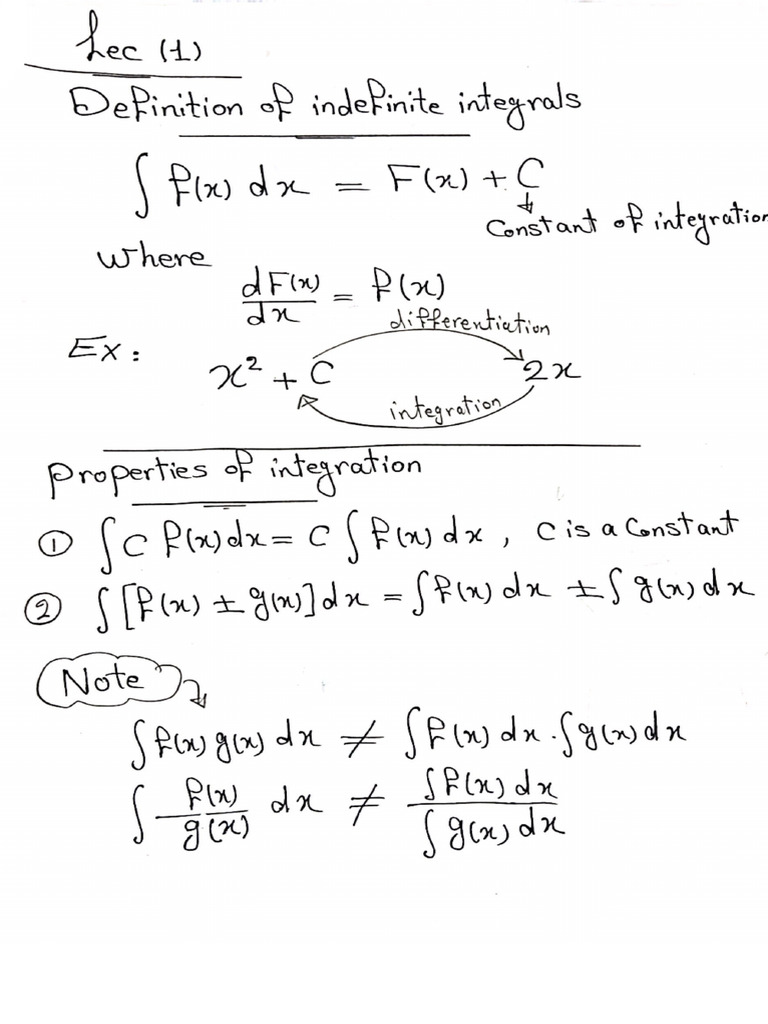 Lec (1)
Definition of indefinite integrals
∫ f(x) dx = F(x) + C
Constant of integration
where
dF(x)/dx = f(x)
differentiation
Ex: x² + C 2x
integration
Properties of integration
① ∫ c f(x) dx = c ∫ f(x) dx , c is a Constant
② ∫ [f(x) ± g(x)] dx = ∫ f(x) dx ± ∫ g(x) dx
Note
∫ f(x) g(x) dx ≠ ∫ f(x) dx · ∫ g(x) dx
∫ f(x)/g(x) dx ≠ ∫ f(x) dx / ∫ g(x) dx